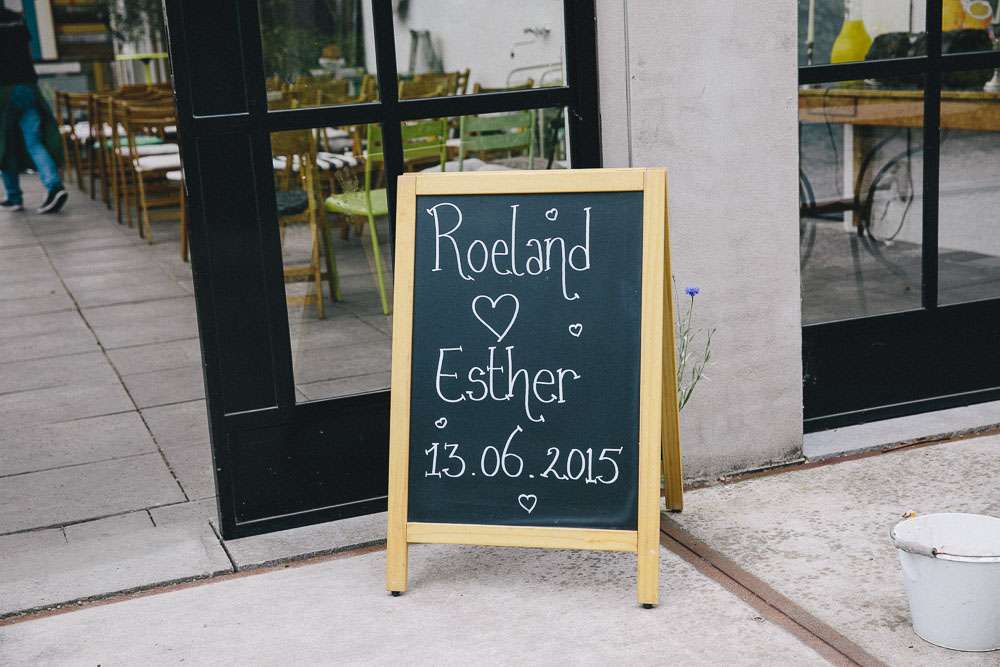 Roeland
Esther
13.06.2015